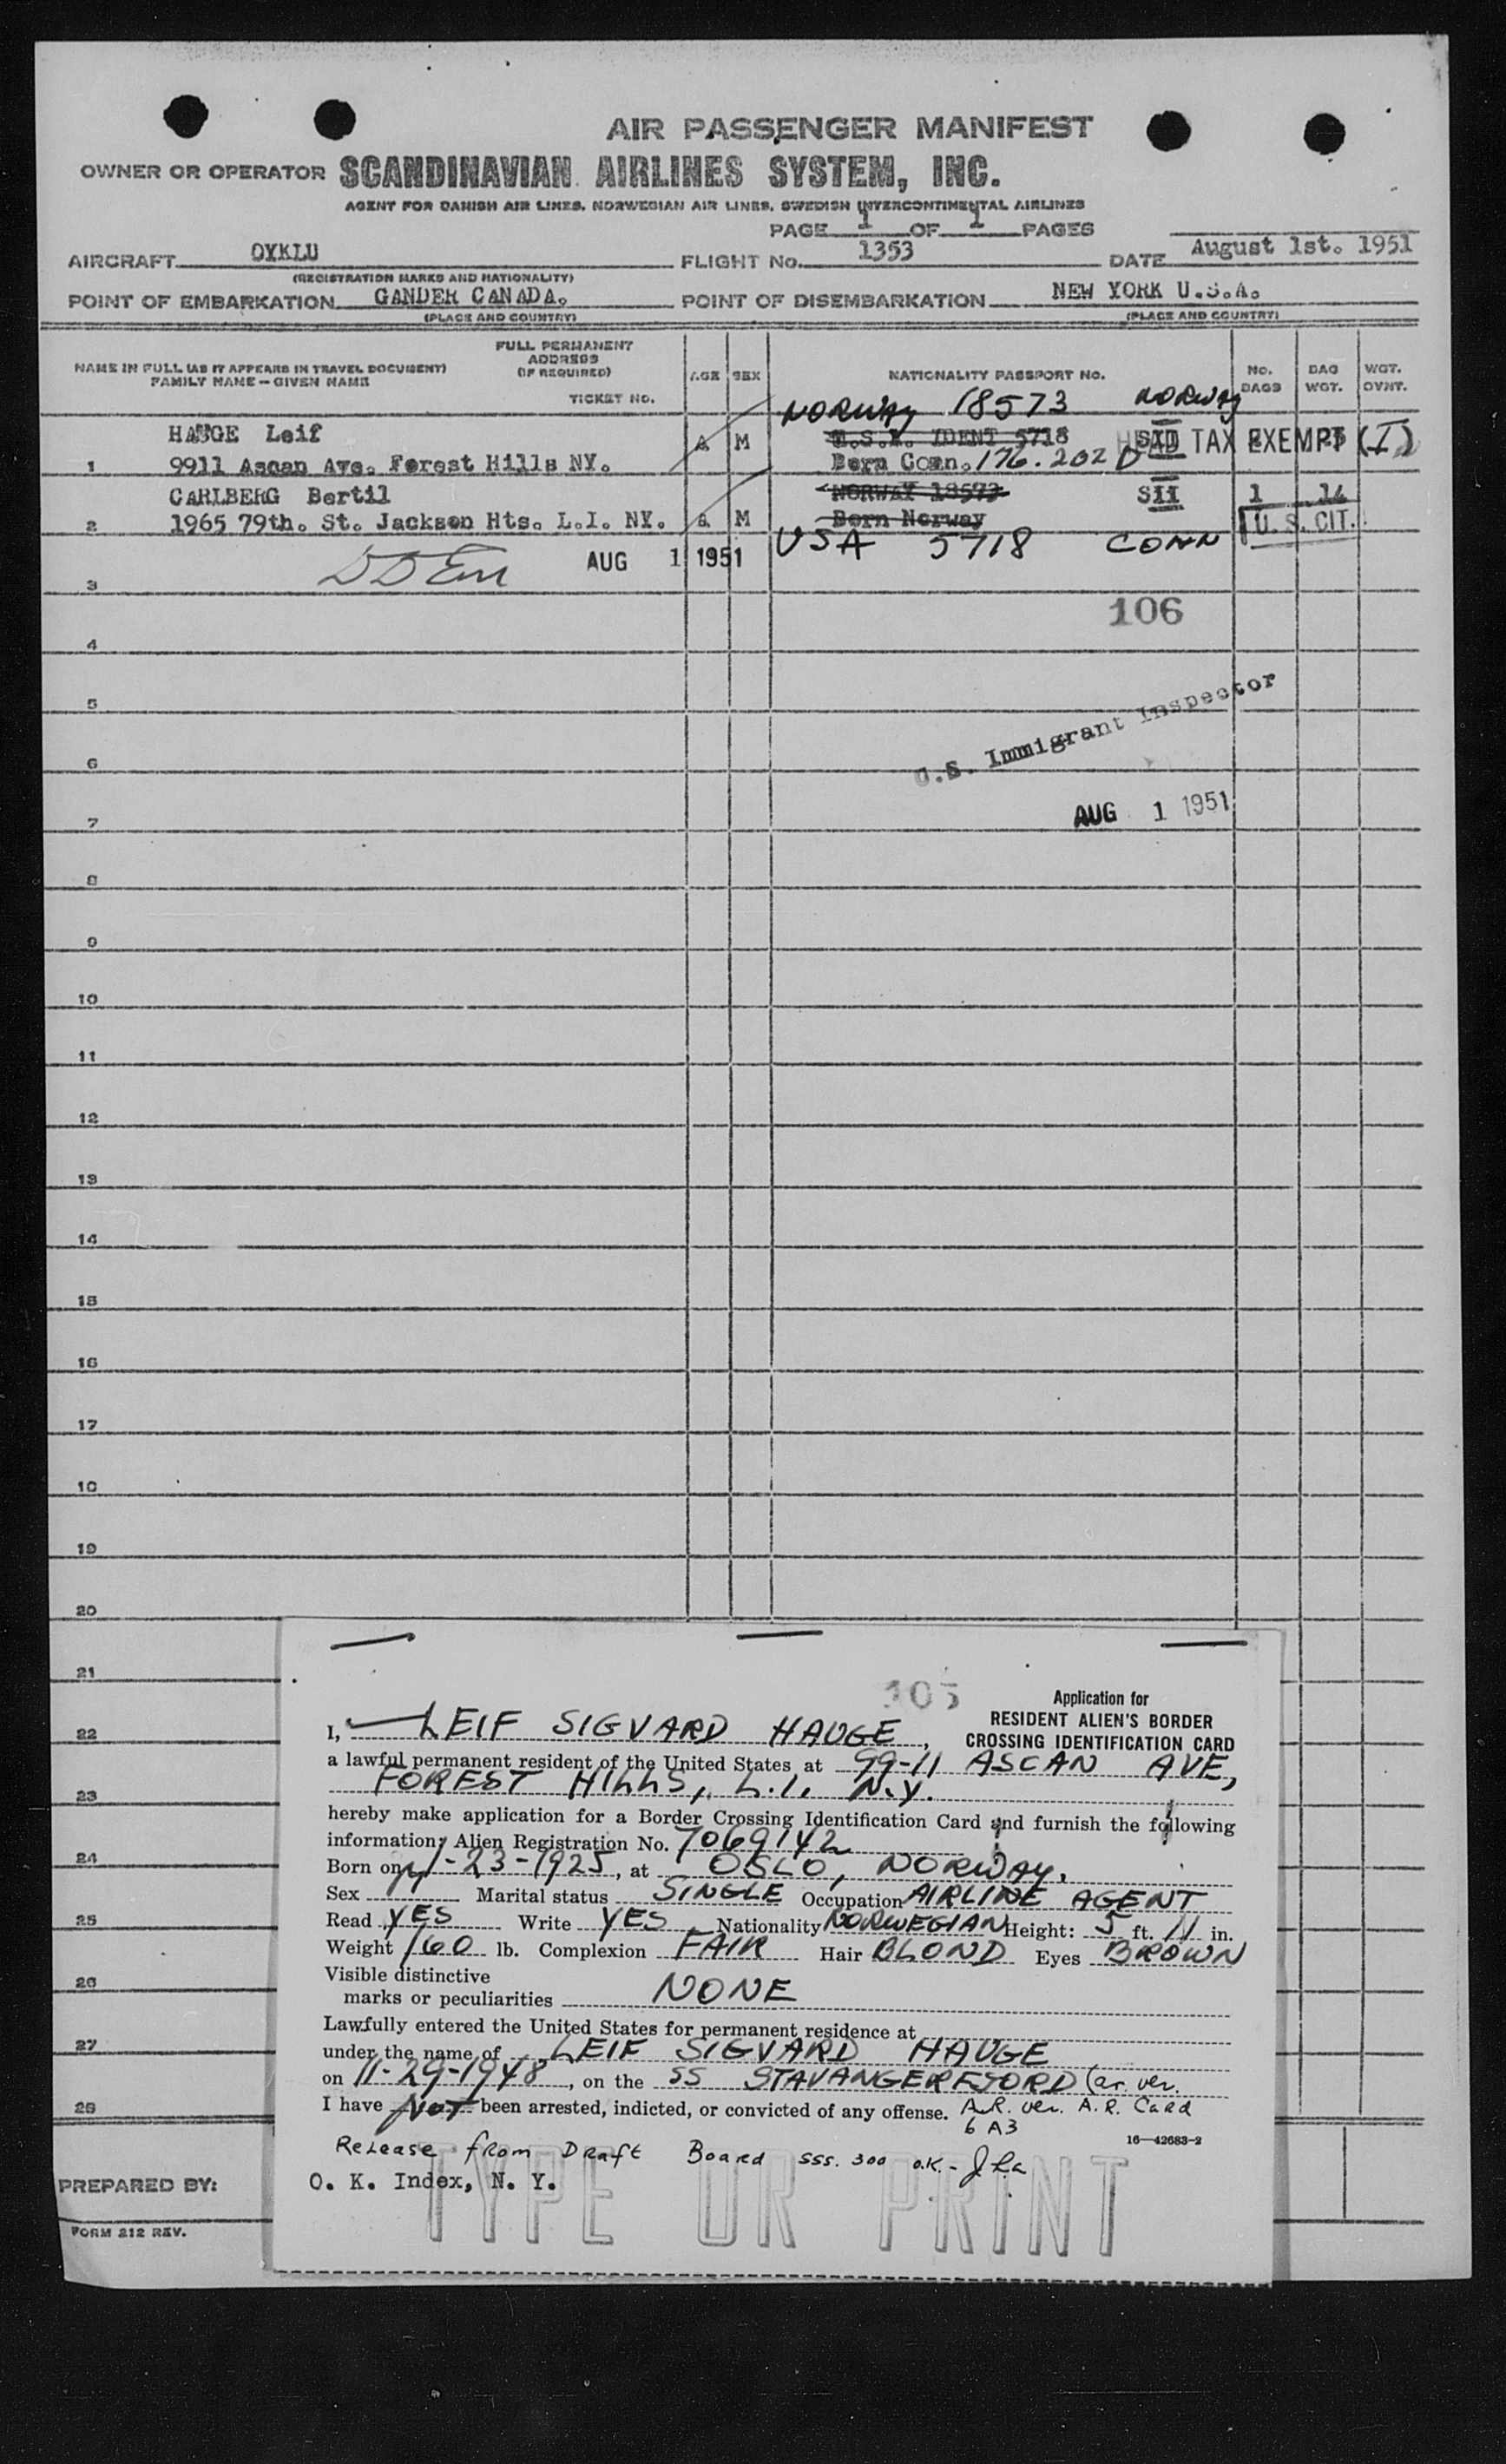 AIR PASSENGER MANIFEST
OWNER OR OPERATOR SCANDINAVIAN AIRLINES SYSTEM, INC.
AGENT FOR DANISH AIR LINES, NORWEGIAN AIR LINES, SWEDISH INTERCONTINENTAL AIRLINES
PAGE 1 OF 1 PAGES
AIRCRAFT OYKLU FLIGHT No. 1353 DATE August 1st. 1951
(REGISTRATION MARKS AND NATIONALITY)
POINT OF EMBARKATION GANDER CANADA. POINT OF DISEMBARKATION NEW YORK U.S.A.
(PLACE AND COUNTRY) (PLACE AND COUNTRY)
NAME IN FULL (AS IT APPEARS IN TRAVEL DOCUMENT) FULL PERMANENT ADDRESS (IF REQUIRED) AGE SEX NATIONALITY PASSPORT NO. NO. BAGS BAG WGT. WGT. OVNT.
FAMILY NAME - GIVEN NAME TICKET NO.
NORWAY 18573 NORWAY
HAUGE Leif A M U.S.A. IDENT 5718 HEAD TAX EXEMPT (I)
1 9911 Ascan Ave. Forest Hills NY. Born Conn. 176.202 D
CARLBERG Bertil NORWAY 18573 SII 1 14
2 1965 79th. St. Jackson Hts. L.I. NY. A M Born Norway U.S. CIT.
USA 5718 CONN
AUG 1 1951
3
106
4
5
U.S. Immigrant Inspector
6
AUG 1 1951
7
8
9
10
11
12
13
14
15
16
17
18
19
20
21
22
23
24
25
26
27
28
105
Application for
RESIDENT ALIEN'S BORDER
CROSSING IDENTIFICATION CARD
I, LEIF SIGVARD HAUGE,
a lawful permanent resident of the United States at 99-11 ASCAN AVE,
FOREST HILLS, L.I. N.Y.
hereby make application for a Border Crossing Identification Card and furnish the following
information: Alien Registration No. 7069142
Born on 1-23-1925, at OSLO, NORWAY.
Sex M Marital status SINGLE Occupation AIRLINE AGENT
Read YES Write YES Nationality NORWEGIAN Height: 5 ft. 11 in.
Weight 160 lb. Complexion FAIR Hair BLOND Eyes BROWN
Visible distinctive
marks or peculiarities NONE
Lawfully entered the United States for permanent residence at
under the name of LEIF SIGVARD HAUGE
on 11-29-1948, on the SS STAVANGERFJORD (ar. ver.
I have NOT been arrested, indicted, or convicted of any offense. A.R. ver. A.R. Card
6 A3
16—42683-2
Release from Draft Board SSS. 300 O.K.-
O. K. Index, N. Y.
TYPE OR PRINT
PREPARED BY:
FORM 212 REV.